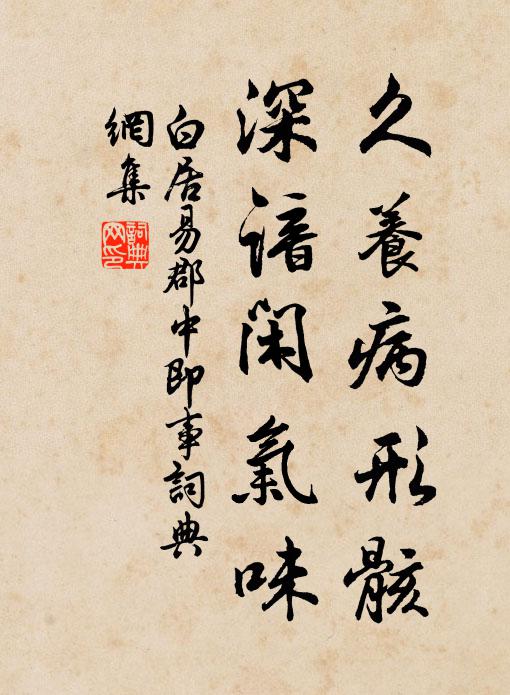 久養病形骸
深諳閑氣味
白居易郡中即事詞典
網集
詞典網印